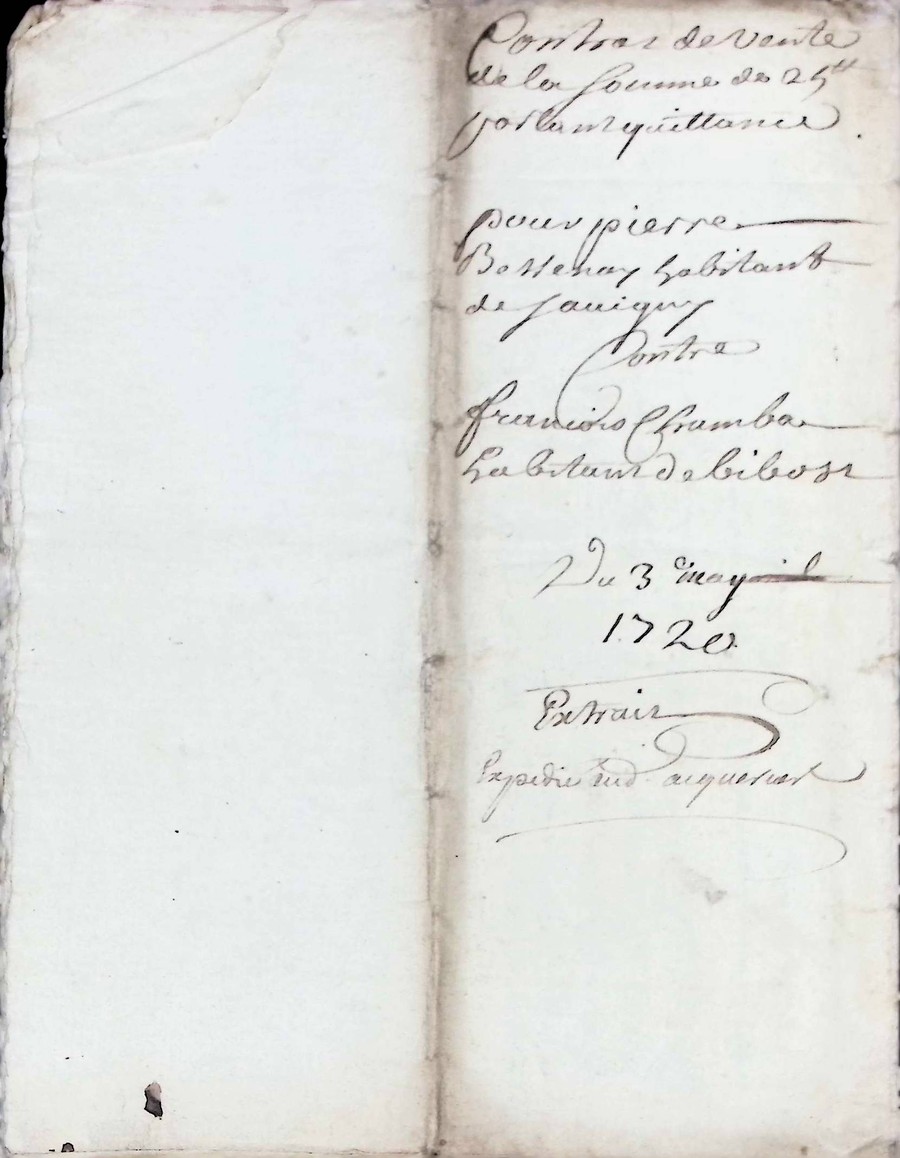 Contrat de vente
de la somme de 25 ₶
portant quittance .
pour pierre
Bessenay habitant
de Savigny
Contre
francois Chamba
habitant de bibost
Du 3e may
1720
Extrait
Expedié aud. acquereur